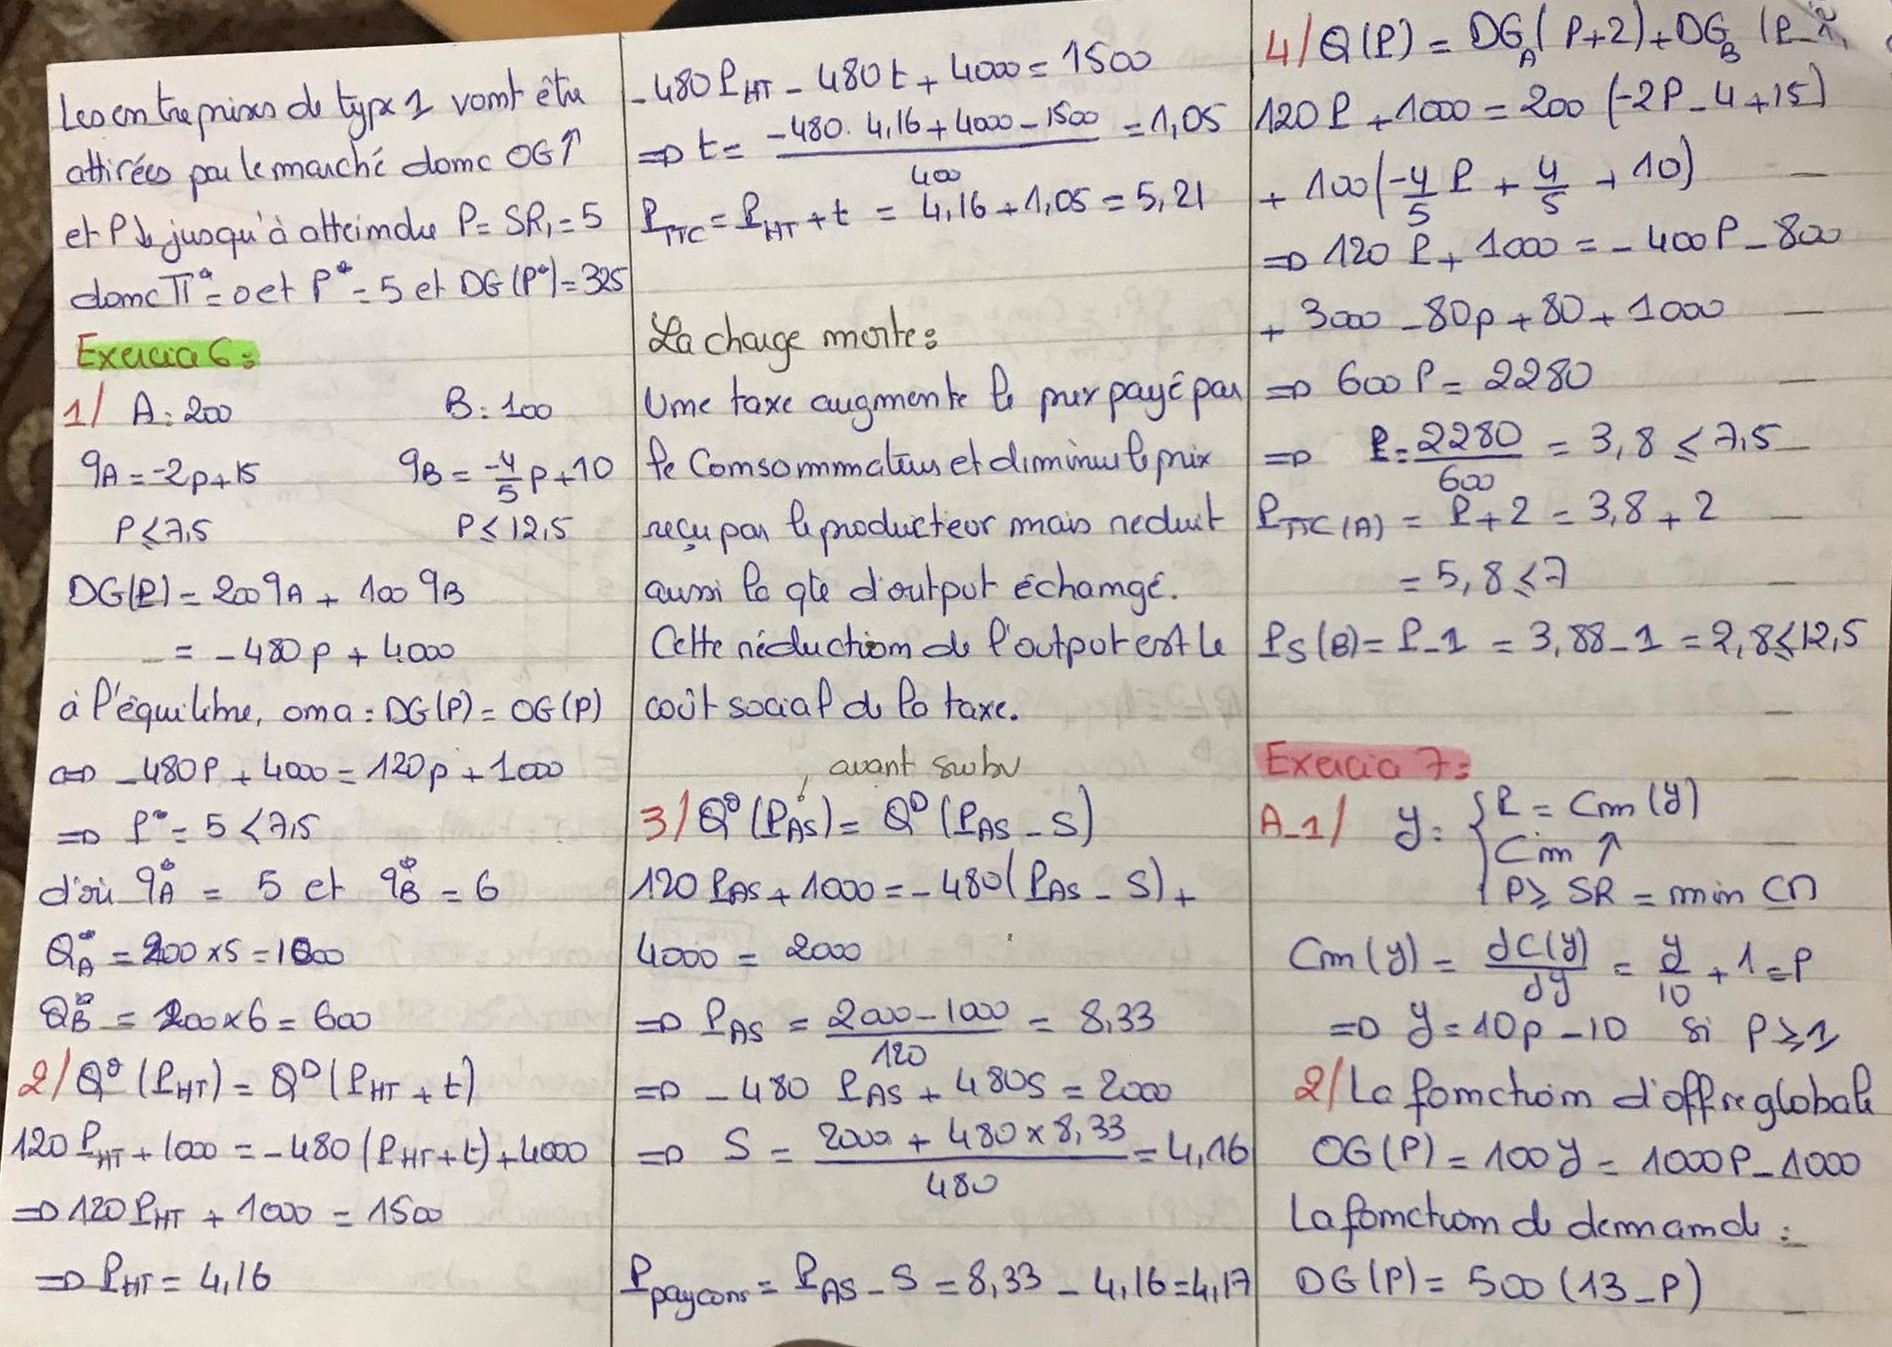 Les entreprises de type 1 vont être
attirées par le marché donc OG↑
et P↓ jusqu'à atteindre P = SR₁ = 5
donc Π* = 0 et P* = 5 et DG(P*) = 325
Exercice 6:
1/ A: 200 B: 100
qA = -2p+15 qB = -4/5 p+10
P ≤ 7,5 P ≤ 12,5
DG(P) = 200qA + 100qB
= -480p + 4000
à l'équilibre, on a: DG(P) = OG(P)
⇔ -480P + 4000 = 120p + 1000
⇒ P* = 5 < 7,5
d'où q*A = 5 et q*B = 6
Q*A = 200 x 5 = 1000
Q*B = 100 x 6 = 600
2/ Q⁰(P_HT) = Qᴰ(P_HT + t)
120 P_HT + 1000 = -480(P_HT + t) + 4000
⇒ 120 P_HT + 1000 = 1500
⇒ P_HT = 4,16
-480 P_HT - 480t + 4000 = 1500
⇒ t = (-480 . 4,16 + 4000 - 1500) / 400 = 1,05
P_TTC = P_HT + t = 4,16 + 1,05 = 5,21
La charge morte:
Une taxe augmente le prix payé par
le Consommateurs et diminue le prix
reçu par le producteur mais reduit
aussi la qte d'output échangé.
Cette réduction de l'output est le
coût social de la taxe.
avant subv
3/ Q⁰(P_AS) = Qᴰ(P_AS - S)
120 P_AS + 1000 = -480(P_AS - S) +
4000 = 2000
⇒ P_AS = (2000 - 1000) / 120 = 8,33
⇒ -480 P_AS + 480S = 2000
⇒ S = (2000 + 480 x 8,33) / 480 = 4,16
P_paycons = P_AS - S = 8,33 - 4,16 = 4,17
4/ Q(P) = DG_A(P+2) + DG_B(P-
120P + 1000 = 200(-2P - 4 + 15)
+ 100(-4/5 P + 4/5 + 10)
⇒ 120P + 1000 = -400P - 800
+ 3000 - 80p + 80 + 1000
⇒ 600P = 2280
⇒ P = 2280/600 = 3,8 ≤ 7,5
P_TTC(A) = P + 2 = 3,8 + 2
= 5,8 ≤ 7
P_S(B) = P - 1 = 3,88 - 1 = 2,8 ≤ 12,5
Exercice 7:
A-1/ y: { P = Cm(y)
Cm ↑
P ≥ SR = min CM
Cm(y) = dC(y)/dy = y/10 + 1 = P
⇒ y = 10p - 10 si P ≥ 1
2/ La fonction d'offre globale
OG(P) = 100y = 1000P - 1000
La fonction de demande:
DG(P) = 500(13 - P)